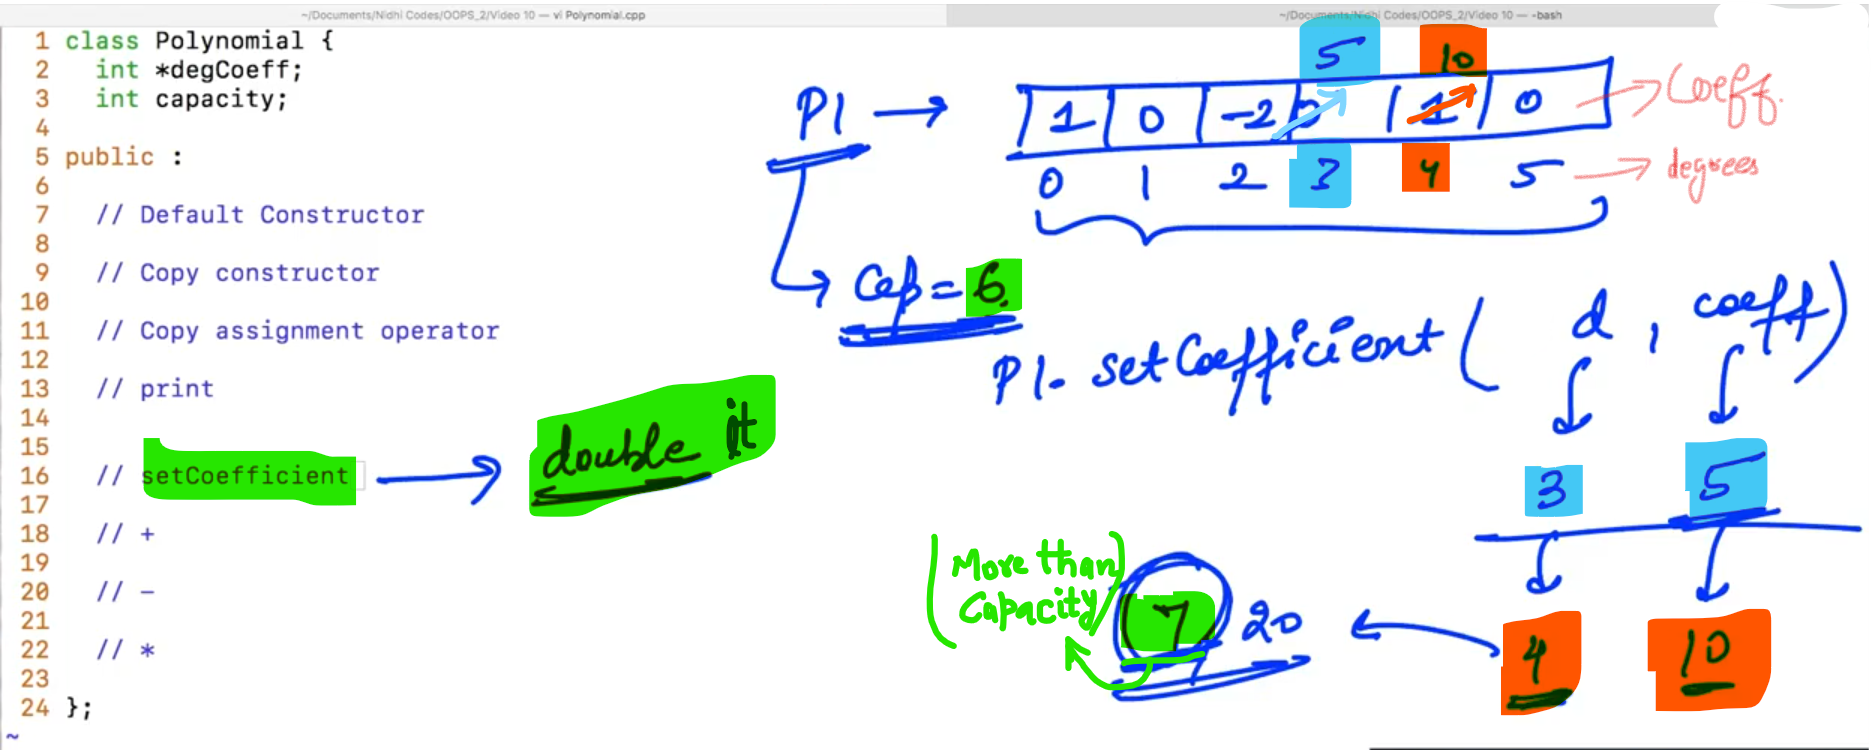 ~/Documents/Nidhi Codes/OOPS_2/Video 10 — vi Polynomial.cpp
~/Documents/Nidhi Codes/OOPS_2/Video 10 — -bash
1 class Polynomial {
2 int *degCoeff;
3 int capacity;
4
5 public :
6
7 // Default Constructor
8
9 // Copy constructor
10
11 // Copy assignment operator
12
13 // print
14
15
16 // setCoefficient
17
18 // +
19
20 // -
21
22 // *
23
24 };
~
double it
5 10
P1 → 1 0 -2 0 1 0 → Coeff.
0 1 2 3 4 5 → degrees
Cap = 6.
P1. setCoefficient ( d , coeff )
3 5
(More than
Capacity)
7 20
4 10